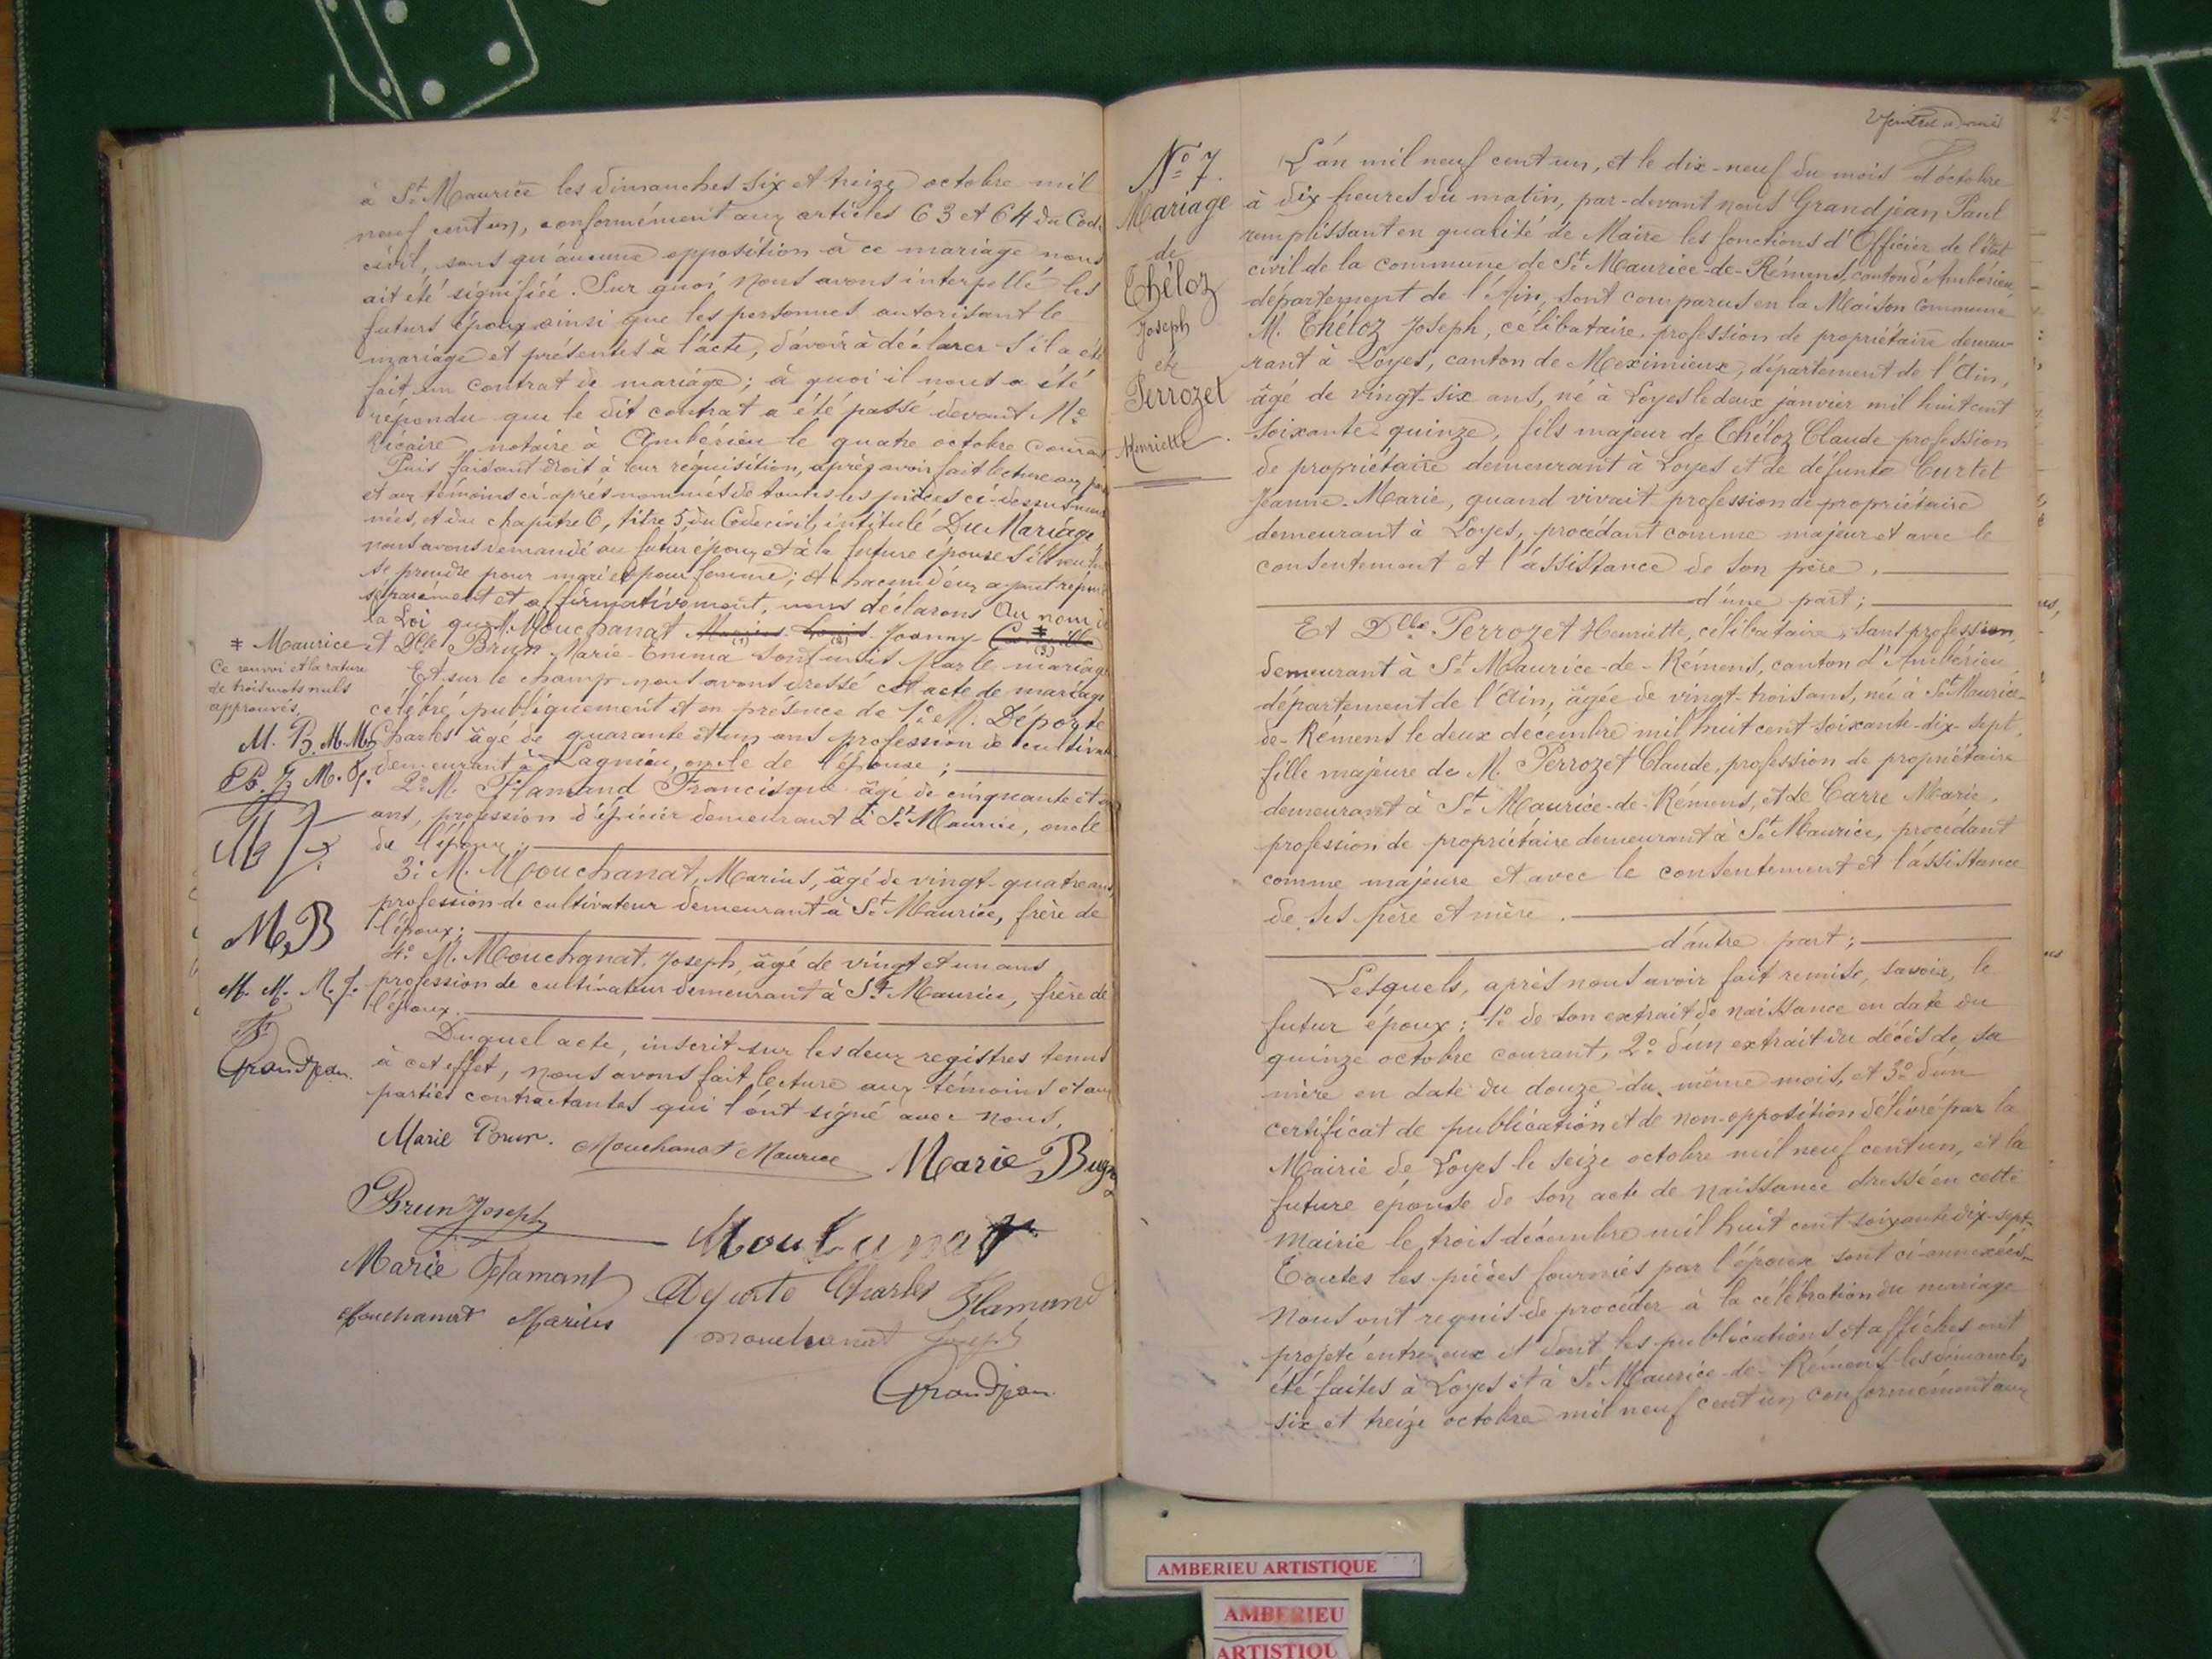 à St Maurice les dimanches six et treize octobre mil
neuf cent un, conformément aux articles 63 et 64 du Code
civil, sans qu'aucune opposition à ce mariage nous
ait été signifiée. Sur quoi nous avons interpellé les
futurs époux ainsi que les personnes autorisant le
mariage et présentes à l'acte, d'avoir à déclarer s'il a été
fait un contrat de mariage; à quoi il nous a été
répondu que le dit contrat a été passé devant Me
Vicaire, notaire à Ambérieu le quatre octobre courant
Puis faisant droit à leur réquisition, après avoir fait lecture aux
et aux témoins ci-après nommés de toutes les pièces ci-dessus
nées, et du chapitre 6, titre 5, du Code civil, intitulé Du Mariage
nous avons demandé au futur époux et à la future épouse s'ils veulent
se prendre pour mari et pour femme; et chacun d'eux ayant répondu
séparément et affirmativement, nous déclarons Au nom de
la Loi que M. Mouchanat Marius Louis Joanny Camille
(1) (2) (3)
* Maurice
et Dlle Brun Marie-Emma sont unis par le mariage
Ce renvoi et la rature
de trois mots nuls
approuvés,
Et sur le champ nous avons dressé cet acte de mariage
célébré publiquement et en présence de 1o M. Déporte
Charles âgé de quarante et un ans profession de cultivateur
demeurant à Lagnieu, oncle de l'épouse;
2o M. Flamand Francisque âgé de cinquante et un
ans, profession d'épicier demeurant à St Maurice, oncle
de l'époux;
3: M. Mouchanat, Marius, âgé de vingt-quatre ans
profession de cultivateur demeurant à St Maurice, frère de
l'époux;
4o M. Mouchanat, Joseph, âgé de vingt et un ans
profession de cultivateur demeurant à St Maurice, frère de
l'époux.
Duquel acte, inscrit sur les deux registres tenus
à cet effet, nous avons fait lecture aux témoins et aux
parties contractantes qui l'ont signé avec nous,
M. B. M. M.
B. J. M. F.
M B
M. M. M. J.
Grandjean
Marie Brun. Mouchanat Maurice Marie Bugn
Brun Joseph
Mouchanat
Marie Flamant Déporte Charles Flamand
Mouchanat Marius mouchanat Joseph
Grandjean
No 7.
Mariage
de
Théloz
Joseph
et
Perrozet
Henriette.
L'an mil neuf cent un, et le dix-neuf du mois d'octobre
à dix heures du matin, par-devant nous Grandjean Paul
remplissant en qualité de Maire les fonctions d'Officier de l'état
civil de la commune de St Maurice-de-Rémens, canton d'Ambérieu,
département de l'Ain, sont comparus en la Maison Commune
M. Théloz Joseph, célibataire, profession de propriétaire demeu-
rant à Loyes, canton de Meximieux, département de l'Ain,
âgé de vingt-six ans, né à Loyes le deux janvier mil huit cent
soixante-quinze, fils majeur de Théloz Claude profession
de propriétaire demeurant à Loyes et de défunte Curtet
Jeanne-Marie, quand vivait profession de propriétaire
demeurant à Loyes, procédant comme majeur et avec le
consentement et l'assistance de son père,
d'une part;
Et Dlle Perrozet Henriette, célibataire, sans profession,
demeurant à St Maurice-de-Rémens, canton d'Ambérieu
département de l'Ain, âgée de vingt-trois ans, née à St Maurice-
de-Rémens le deux décembre mil huit cent soixante-dix-sept,
fille majeure de M. Perrozet Claude, profession de propriétaire
demeurant à St Maurice-de-Rémens, et de Carre Marie,
profession de propriétaire demeurant à St Maurice, procédant
comme majeure et avec le consentement et l'assistance
de ses père et mère.
d'autre part;
Lesquels, après nous avoir fait remise, savoir, le
futur époux: 1o de son extrait de naissance en date du
quinze octobre courant, 2o d'un extrait du décès de sa
mère en date du douze du même mois, et 3o d'un
certificat de publication et de non-opposition délivré par la
Mairie de Loyes le seize octobre mil neuf cent un, et la
future épouse de son acte de naissance dressé en cette
Mairie le trois décembre mil huit cent soixante-dix-sept.
Toutes les pièces fournies par l'époux sont ci-annexées.
Nous ont requis de procéder à la célébration du mariage
projeté entre eux et dont les publications et affiches ont
été faites à Loyes et à St Maurice-de-Rémens les dimanches
six et treize octobre mil neuf cent un conformément aux
AMBERIEU ARTISTIQUE
AMBERIEU
ARTISTIQU